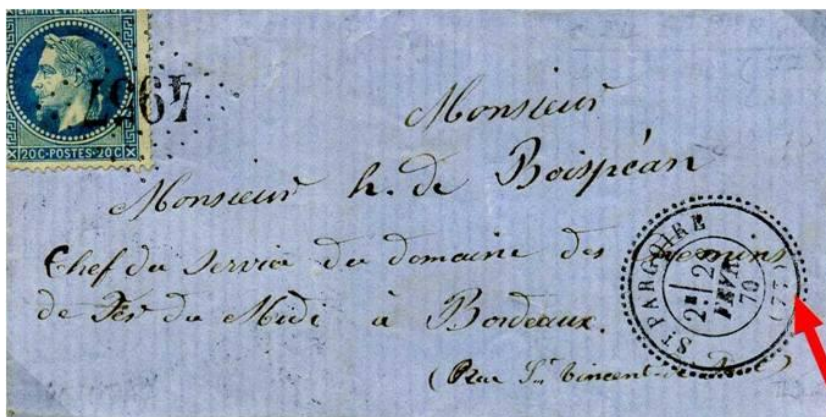 EMPIRE FRANÇAIS
20C·POSTES·20C
Monsieur
Monsieur h. de Boispéan
Chef du Service du domaine des Chemins
de Fer du Midi à Bordeaux.
(Rue St Vincent de
ST PARGOIRE
FEVR
70
(77)